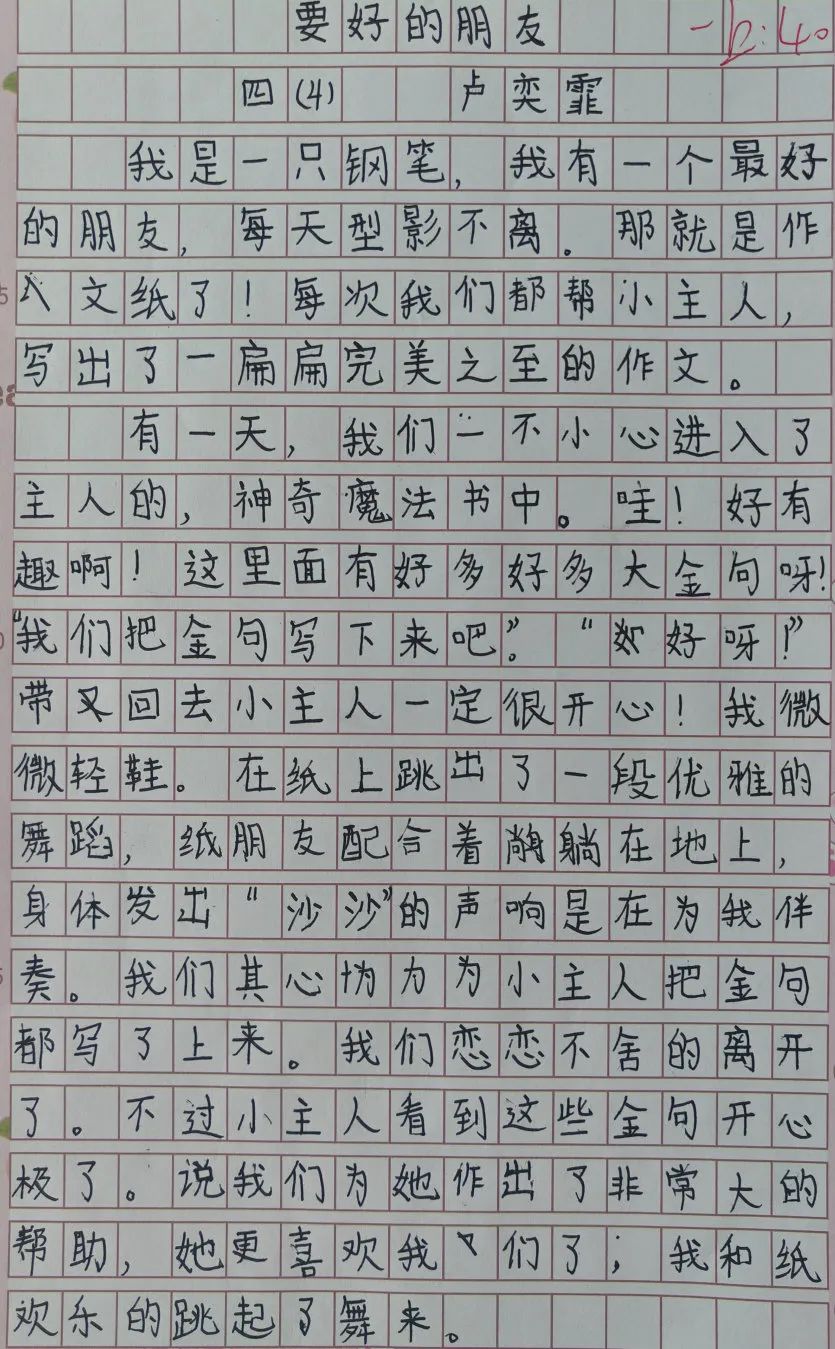 要好的朋友
四(4) 卢奕霏
我是一只钢笔，我有一个最好
的朋友，每天型影不离。那就是作
文纸了！每次我们都帮小主人，
写出了一扁扁完美之至的作文。
有一天，我们一不小心进入了
主人的，神奇魔法书中。哇！好有
趣啊！这里面有好多好多大金句呀！
“我们把金句写下来吧”。“好呀！”
带回去小主人一定很开心！我微
微轻鞋。在纸上跳出了一段优雅的
舞蹈，纸朋友配合着躺在地上，
身体发出“沙沙”的声响是在为我伴
奏。我们其心力为小主人把金句
都写了上来。我们恋恋不舍的离开
了。不过小主人看到这些金句开心
极了。说我们为她作出了非常大的
帮助，她更喜欢我们了；我和纸
欢乐的跳起了舞来。